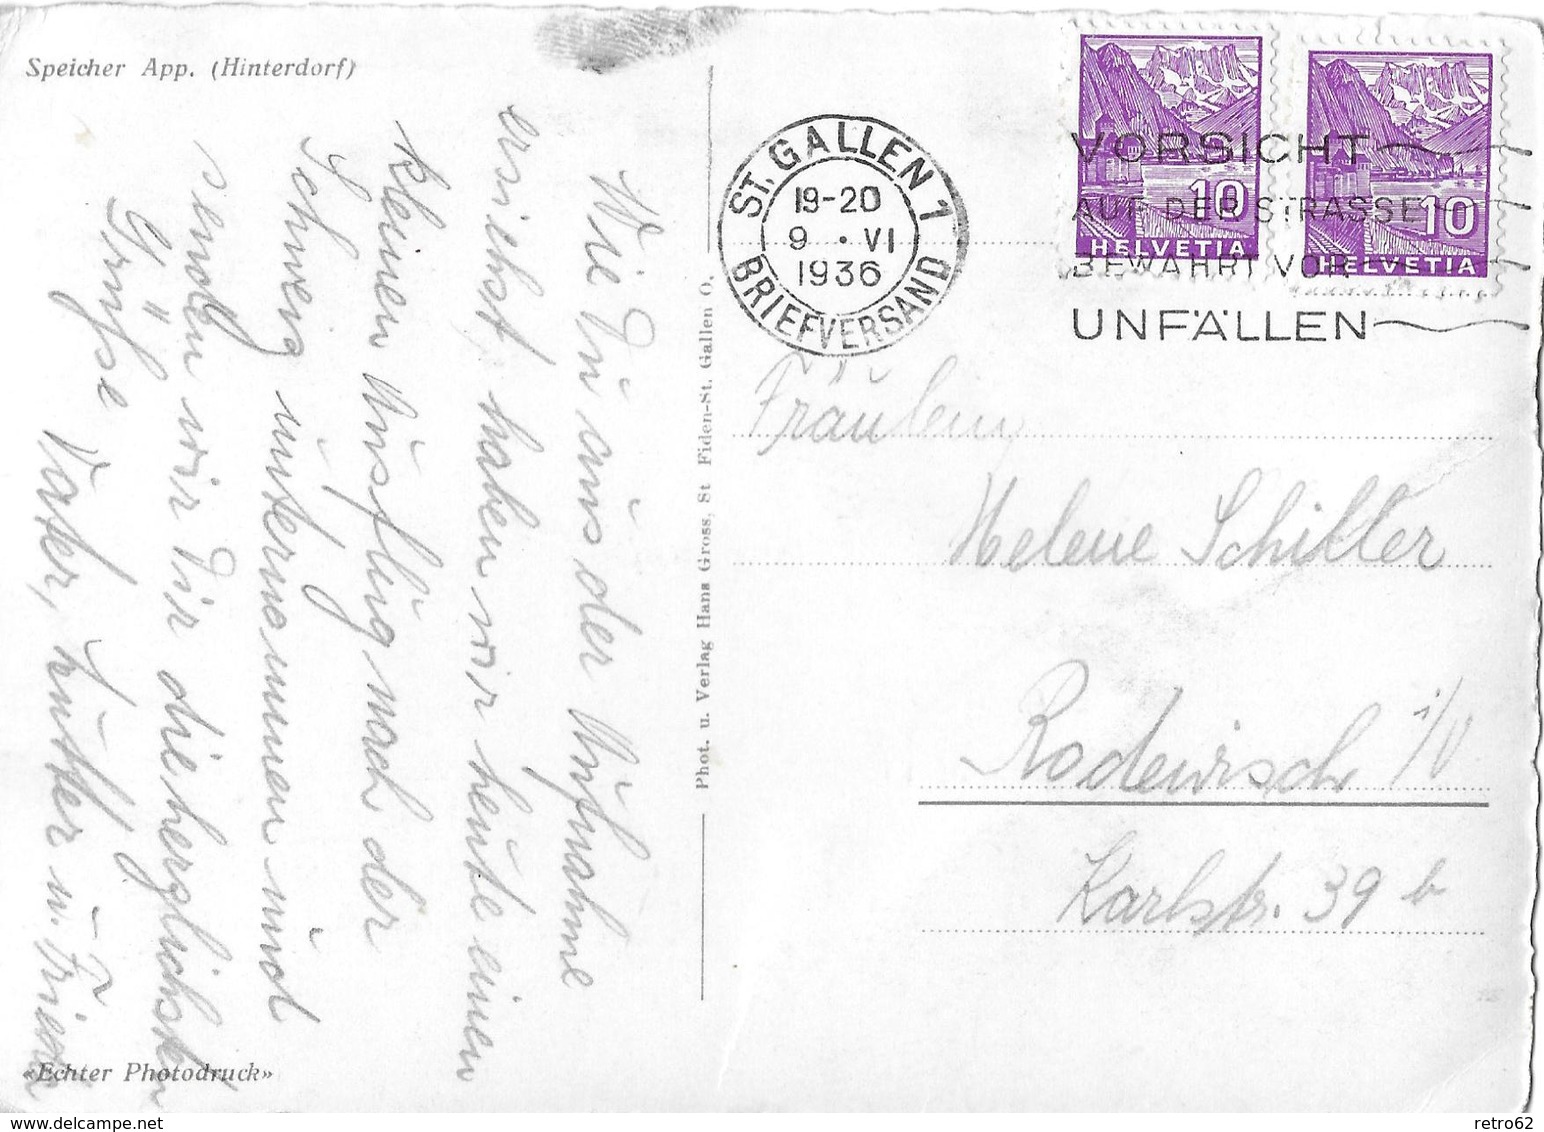 Speicher App. (Hinterdorf)
Wie Du aus der Aufnahme
ersiehst, haben wir heute einen
kleinen Ausflug nach der
Schweiz unternommen und
senden wir Dir die herzlichsten
Grüsse
Vater, Mutter u.
«Echter Photodruck»
Phot. u. Verlag Hans Gross, St Fiden-St. Gallen O.
ST. GALLEN 1
19-20
9 • VI
1936
BRIEFVERSAND
10
HELVETIA
10
HELVETIA
VORSICHT
AUF DER STRASSE
BEWAHRT VOR
UNFÄLLEN
Fräulein
Helene Schiller
Rodewisch i/V
Karlstr. 39 b
delcampe.net
retro62